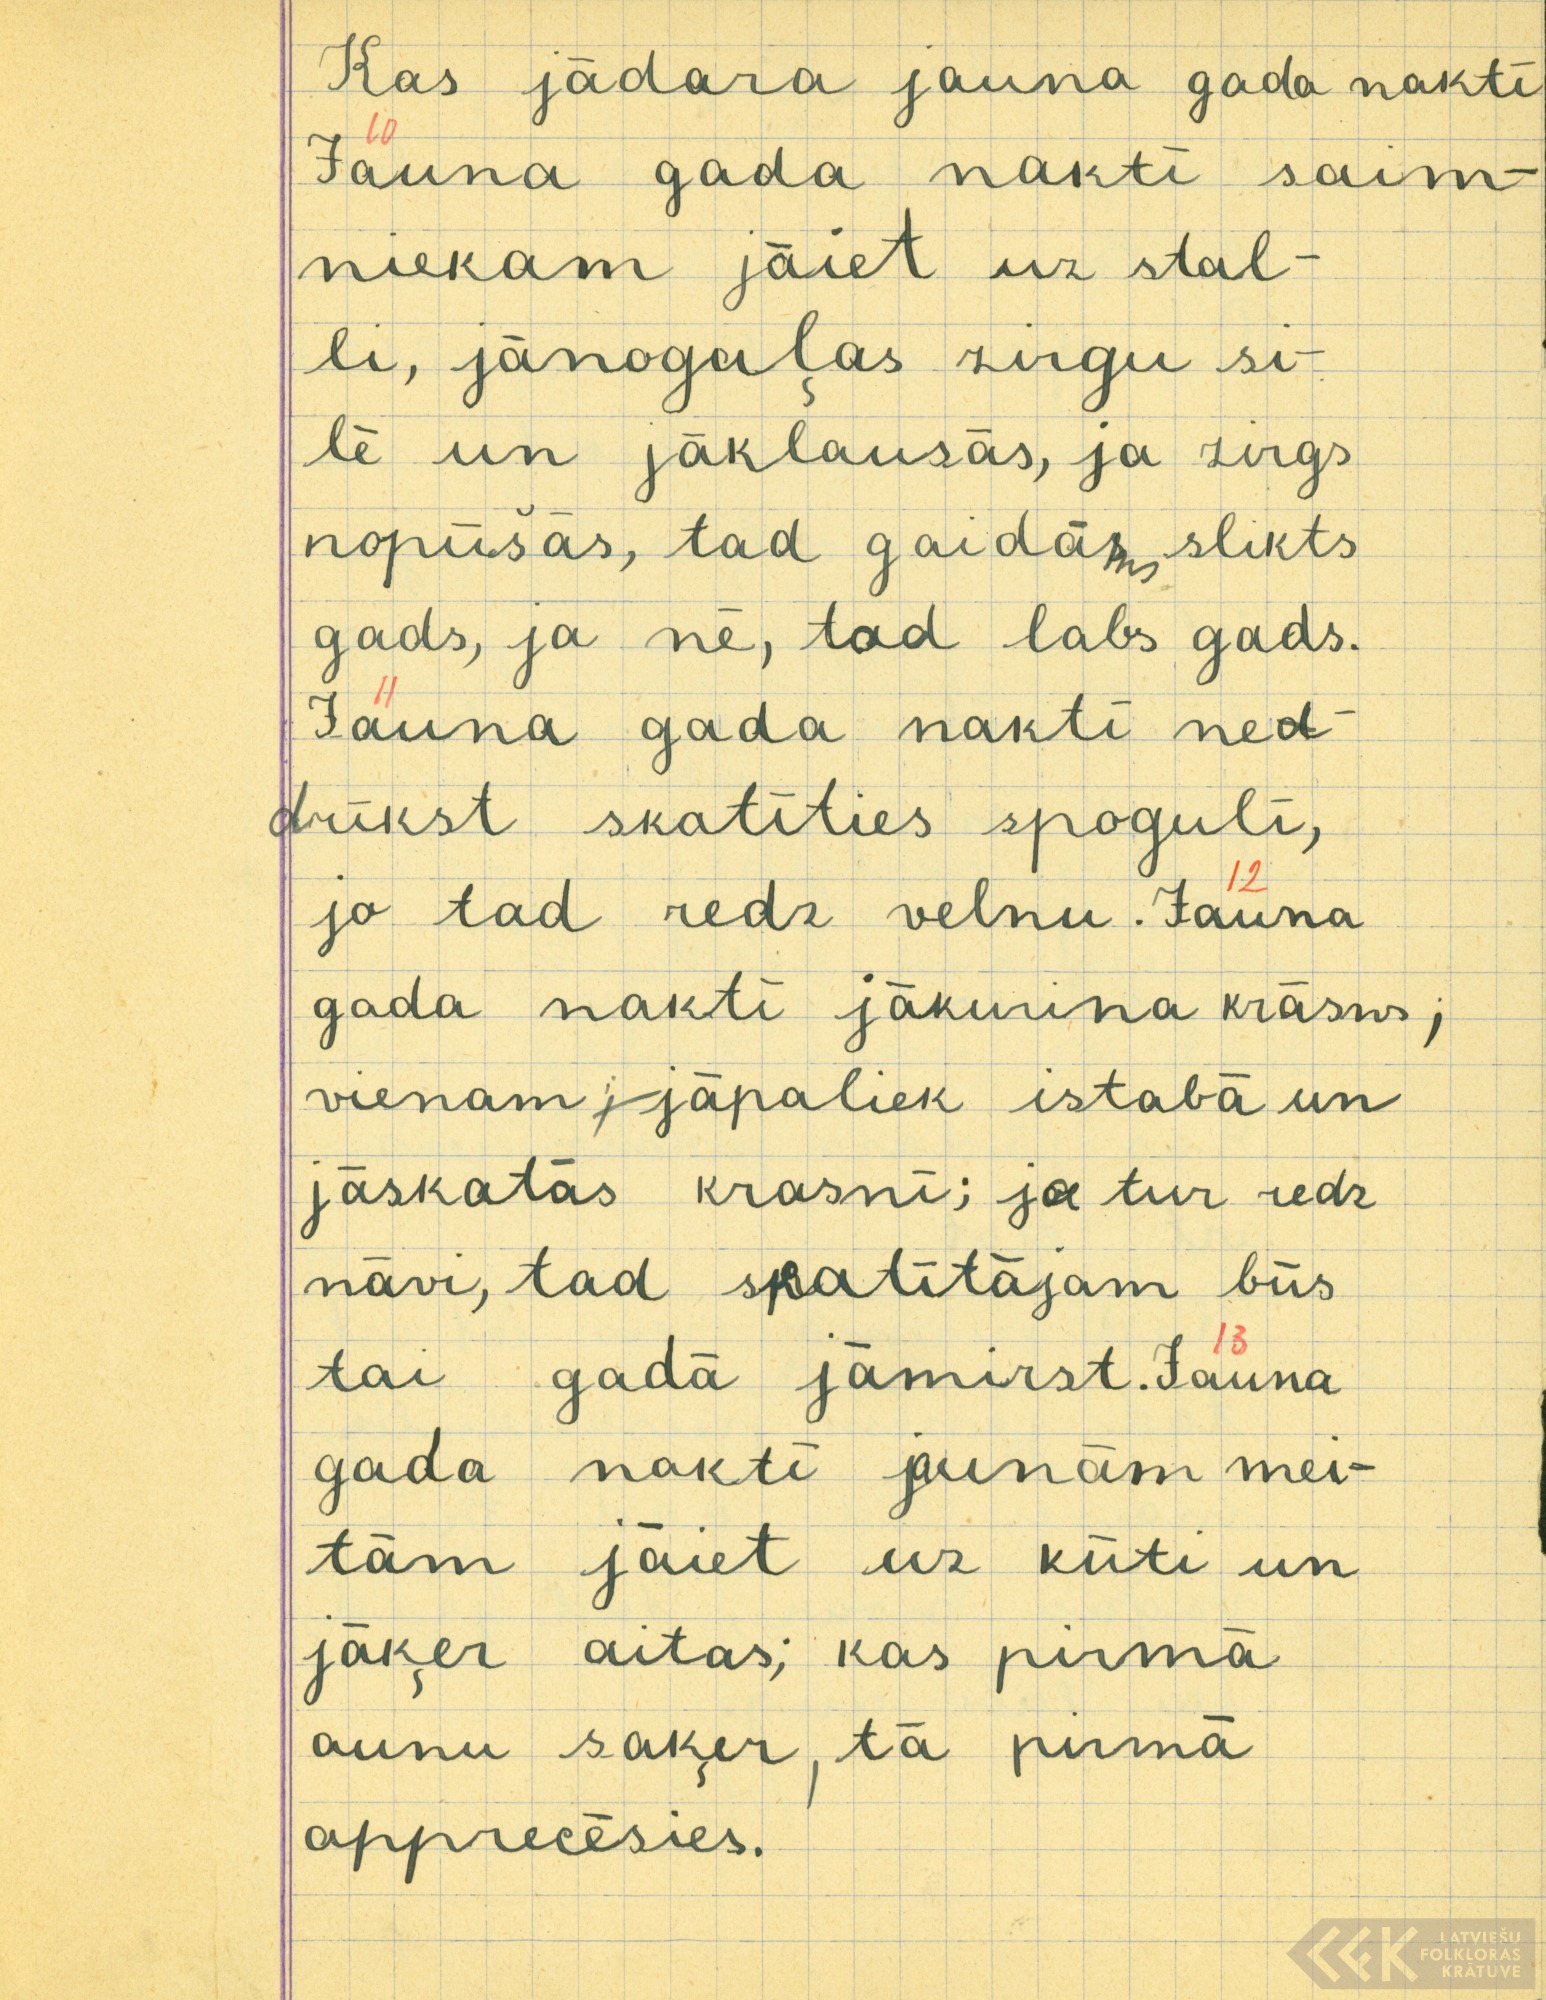 Kas jādara jauna gada naktī
10
Jauna gada naktī saim-
niekam jāiet uz stal-
li, jānoguļas zirgu si-
lē un jāklausās, ja zirgs
nopūšās, tad gaidāms slikts
gads, ja nē, tad labs gads.
11
Jauna gada naktī ned-
drīkst skatīties spogulī,
12
jo tad redz velnu. Jauna
gada naktī jākurina krāsns;
vienam jāpaliek istabā un
jāskatās krasnī; ja tur redz
nāvi, tad skatītājam būs
13
tai gadā jāmirst. Jauna
gada naktī jaunām mei-
tām jāiet uz kūti un
jāķer aitas; kas pirmā
aunu saķer, tā pirmā
apprecēsies.
LATVIEŠU
FOLKLORAS
KRĀTUVE